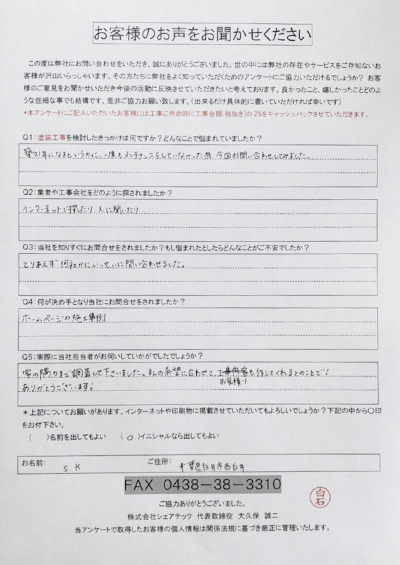 お客様のお声をお聞かせください
この度は弊社にお問い合わせをいただき、誠にありがとうございます。世の中には弊社の存在やサービスをご存知ないお
客様が沢山いらっしゃいます。その方たちに弊社をよく知っていただくためのアンケートにご協力いただけるでしょうか？ お客
様のご意見をお聞かせいただき今後の活動に反映させていただきたいと考えております。良かったこと、嬉しかったことどのよ
うな些細な事でも結構です。是非ご協力お願い致します。（出来るだけ具体的に書いていただければ幸いです）
*本アンケートにご記入いただいたお客様には工事ご用命時に工事金額(税抜き)の2%をキャッシュバックさせていただきます。
Q1：塗装工事を検討したきっかけは何ですか？どんなことで悩まれていましたか？
築21年になるというのに、一度もメンテナンスをしていなかった為、今回お問い合わせしてみました。
Q2：業者や工事会社をどのように探されましたか？
インターネットで探したり、人に聞いたり
Q3：当社を知りすぐにお問合せをされましたか？もし悩まれたとしたらどんなことがご不安でしたか？
とりあえず何社かにいっせいに問い合わせました。
Q4：何が決め手となり当社にお問合せをされましたか？
ホームページの施工事例
Q5：実際に当社担当者がお伺いしていかがでしたでしょうか？
家の隅々まで調査して下さいました。私の希望に合わせて、工事内容も作してくれるとのことで、
お見積り
ありがとうございます。
＊上記についてお願いがあります。インターネットや印刷物に掲載させていただいてもよろしいでしょうか？下記の中から〇印
をお付下さい。
（　　）名前を出してもよい （ ○ ）イニシャルなら出してもよい
お名前： S K ご住所： 千葉県白井市
FAX 0438-38-3310
ご協力ありがとうございました。
白石
株式会社シェアテック 代表取締役 大久保 誠二
当アンケートで取得したお客様の個人情報は関係法規に基づき厳正に管理いたします。